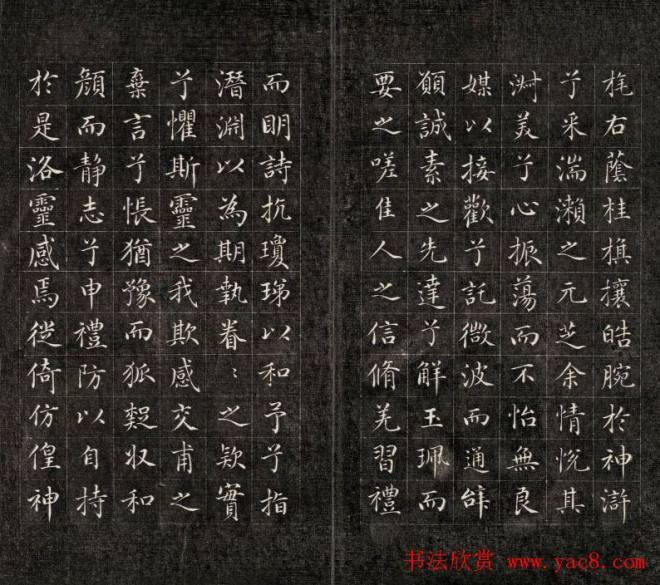 旄右蔭桂旗攘皓腕於神滸
兮采湍瀨之元芝余情悅其
淑美兮心振蕩而不怡無良
媒以接歡兮託微波而通辭
願誠素之先達兮解玉珮而
要之嗟佳人之信脩羌習禮
而明詩抗瓊珶以和予兮指
潛淵以為期執眷〻之欵實
兮懼斯靈之我欺感交甫之
棄言兮悵猶豫而狐疑収和
顏而靜志兮申禮防以自持
於是洛靈感焉徙倚仿偟神
书法欣赏 www.yac8.com